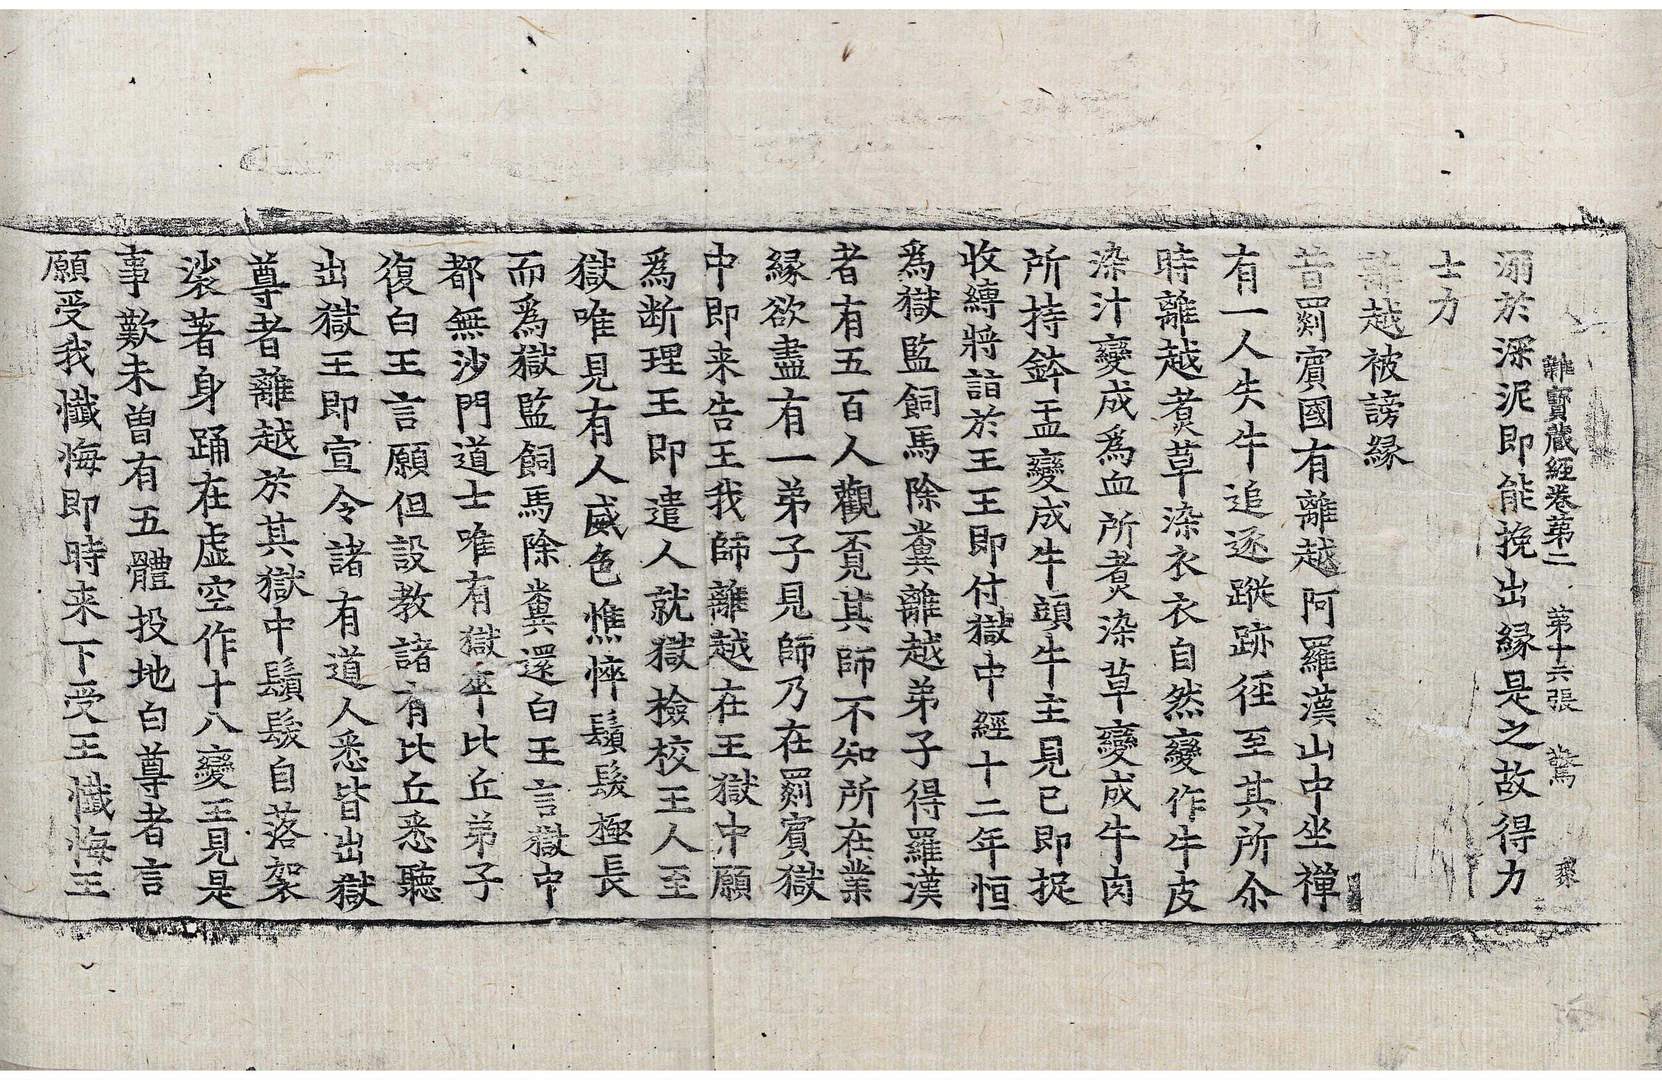 雜寶藏經卷第二 第十六張 驚
溺於深泥即能挽出緣是之故得力
士力
離越被謗緣
昔罽賓國有離越阿羅漢山中坐禪
有一人失牛追逐蹤跡徑至其所尒
時離越煮草染衣衣自然變作牛皮
染汁變成為血所煮染草變成牛肉
所持鉢盂變成牛頭牛主見已即捉
收縛將詣於王王即付獄中經十二年恒
為獄監飼馬除糞離越弟子得羅漢
者有五百人觀覓其師不知所在業
緣欲盡有一弟子見師乃在罽賓獄
中即来告王我師離越在王獄中願
為断理王即遣人就獄檢校王人至
獄唯見有人威色憔悴鬚髮極長
而為獄監飼馬除糞還白王言獄中
都無沙門道士唯有獄卒比丘弟子
復白王言願但設教諸有比丘悉聽
出獄王即宣令諸有道人悉皆出獄
尊者離越於其獄中鬚髮自落袈
裟著身踊在虛空作十八變王見是
事歎未曾有五體投地白尊者言
願受我懺悔即時来下受王懺悔王